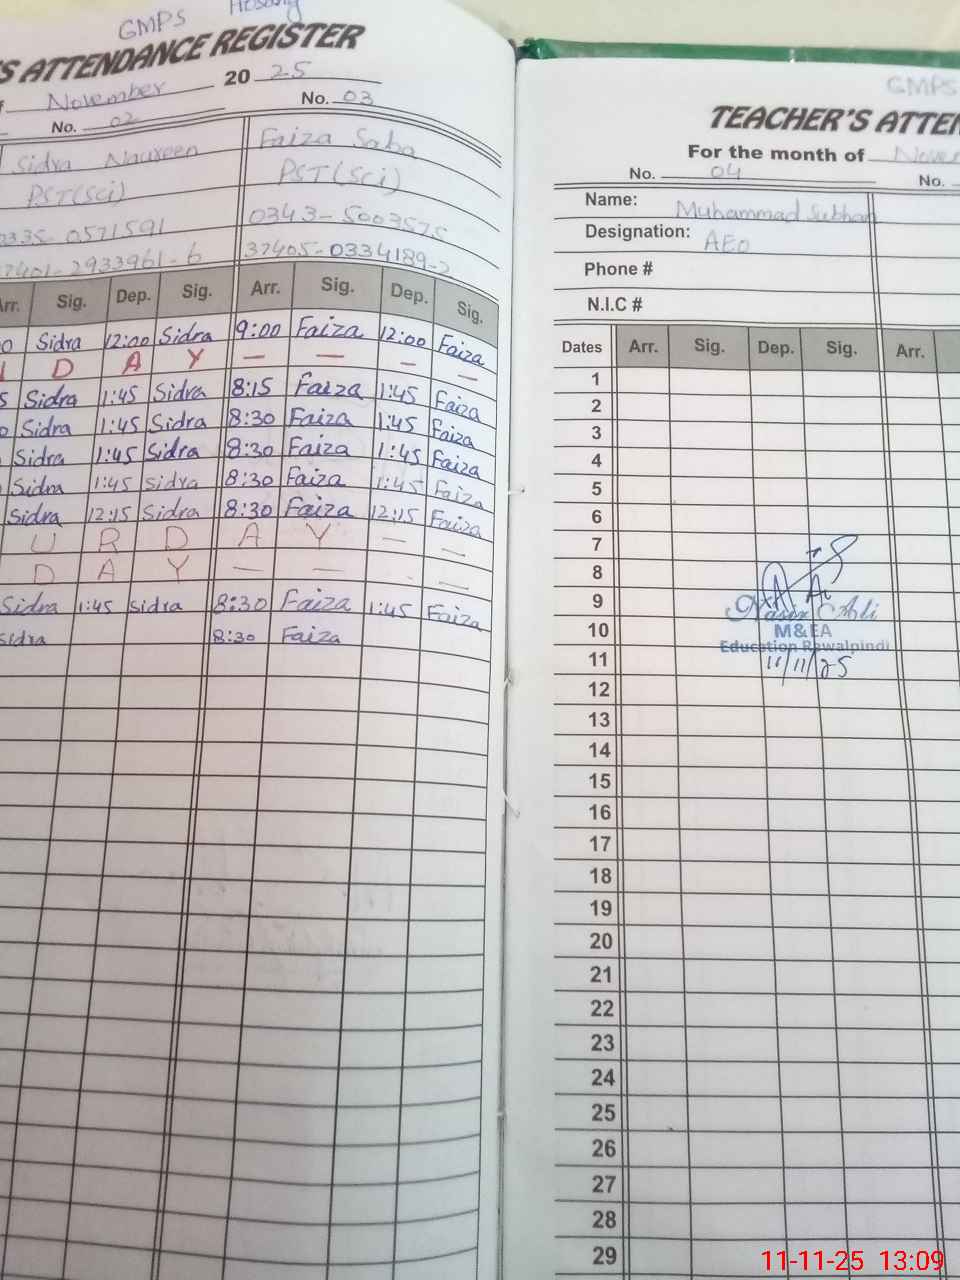 GMPS
S ATTENDANCE REGISTER
November 20 25
No. 02 No. 03
Sidra Naureen Faiza Saba
PST(Sci) PST(Sci)
0335-0571591 0343-5003575
37401-2933961-6 37405-0334189-2
Arr. Sig. Dep. Sig. Arr. Sig. Dep. Sig.
0 Sidra 12:00 Sidra 9:00 Faiza 12:00 Faiza
D A Y — — — —
5 Sidra 1:45 Sidra 8:15 Faiza 1:45 Faiza
0 Sidra 1:45 Sidra 8:30 Faiza 1:45 Faiza
Sidra 1:45 Sidra 8:30 Faiza 1:45 Faiza
Sidra 1:45 Sidra 8:30 Faiza 1:45 Faiza
Sidra 12:15 Sidra 8:30 Faiza 12:15 Faiza
U R D A Y — —
D A Y — — — —
Sidra 1:45 Sidra 8:30 Faiza 1:45 Faiza
Sidra 8:30 Faiza
GMPS
TEACHER'S ATTEN
For the month of Nove
No. 04 No.
Name: Muhammad Subhan
Designation: AEO
Phone #
N.I.C #
Dates Arr. Sig. Dep. Sig. Arr.
1
2
3
4
5
6
7
8
9
10
11
12
13
14
15
16
17
18
19
20
21
22
23
24
25
26
27
28
29
Nasir Ali
M&EA
Education Rawalpindi
11/11/25
11-11-25 13:09